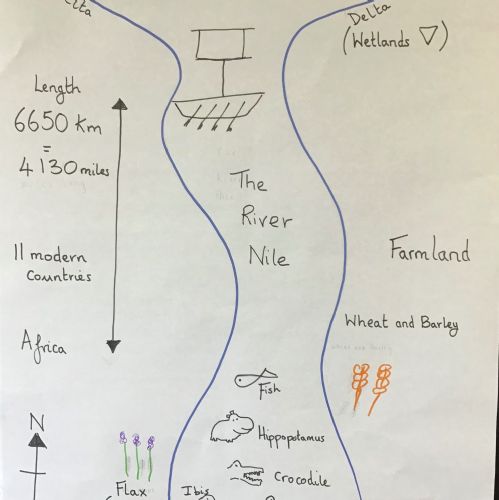 Delta
(Wetlands ▽)
Length
6650 Km
=
4130 miles
The
River
Nile
11 modern
Countries
Farmland
Africa
Wheat and Barley
Fish
Hippopotamus
Crocodile
N
Flax
Ibis